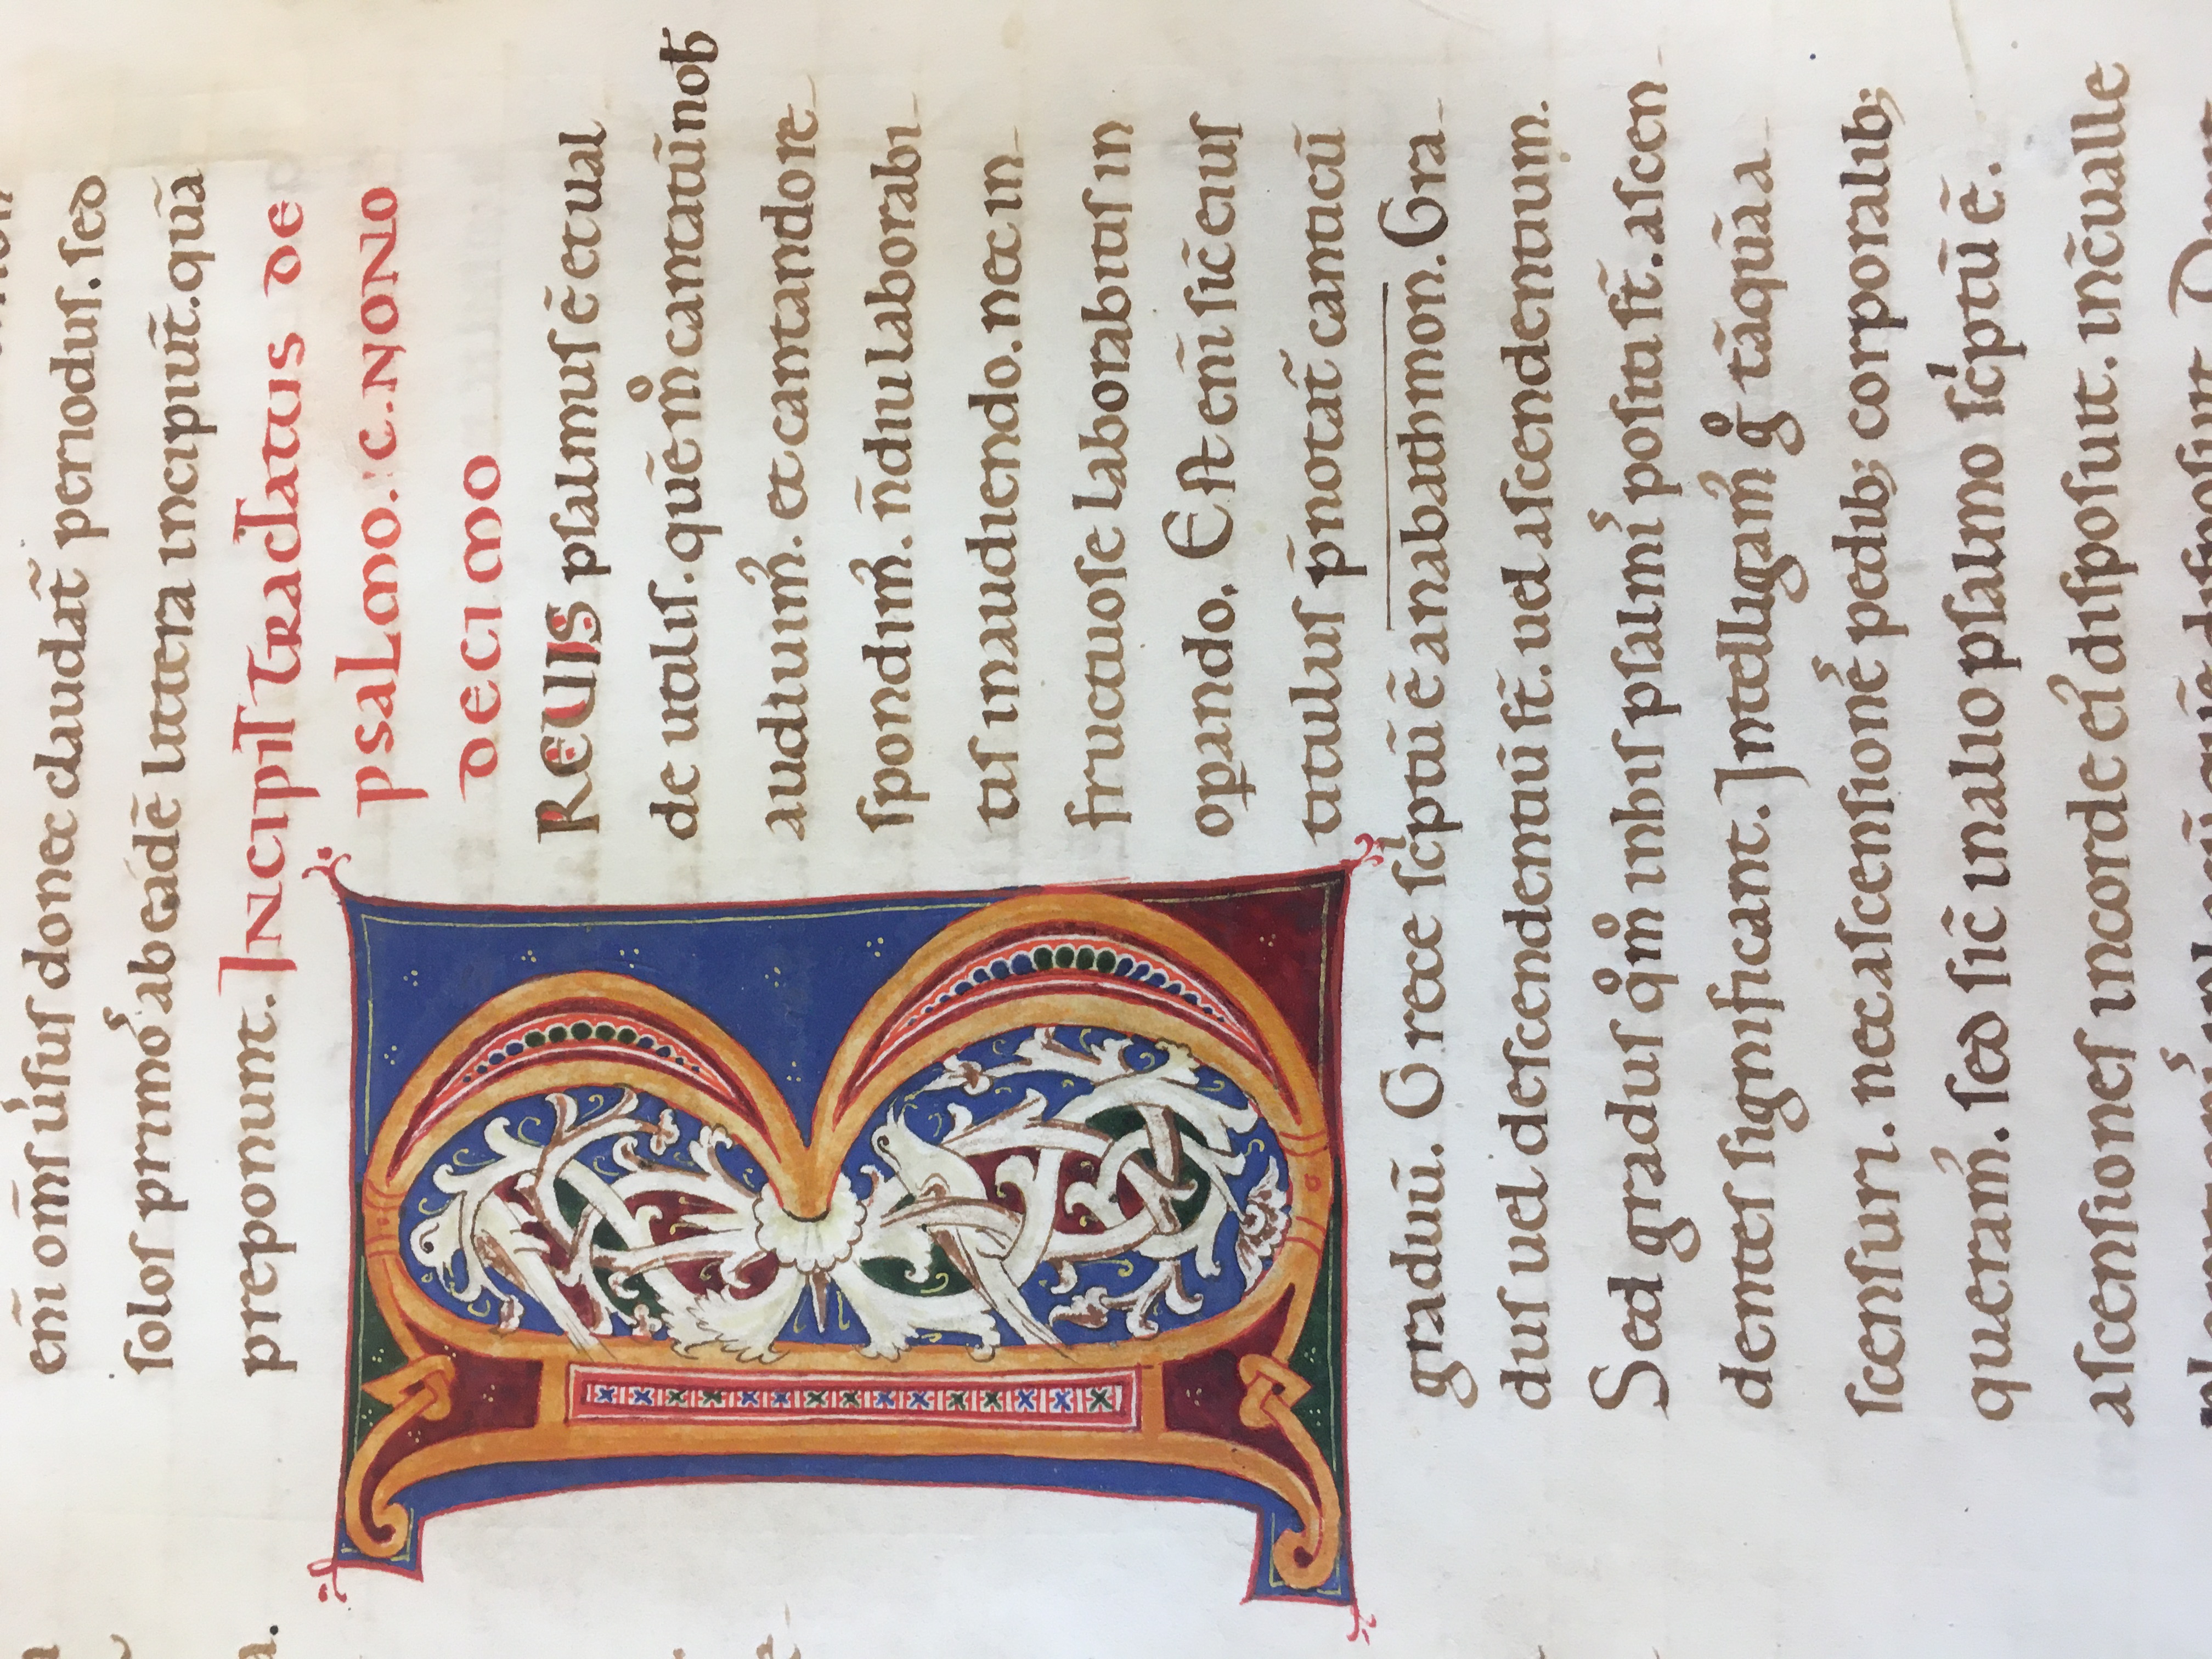 eñi om̄s úsus donec claudat̄ periodus. sed
solos primos ab eadē littera incipiuñt. quā
preponunt. INCIPIT TRACTATUS DE
PSALMO. C. NONO
DECIMO
BREUIS psalmus ē et ual
de utilis. quē m̊ cantatū nob
audiuim᾽. et cantando re
spondim᾽. n̄ diu laborabi
tis in audiendo. nec in
fructuose laborabitis in
oꝑando. Est eñi sic̄ eius
titulus p̄notat̄ canticū
graduū. Grece sc͛ptū ē anabathmon. Gra
dus uel descendentiū st̄. uel ascendentium.
Sed gradus qm̊ in hiis psalmis positi st̄. ascen
dentes significant. Intellugam᾽ g̊ tāquā a
scensuri. nec ascensiones pedib; corporalib;
queram᾽. sed sic̄ in alio psalmo sc͛ptū ē.
ascensiones in corde ei᾽ disposuit. in c̄ualle